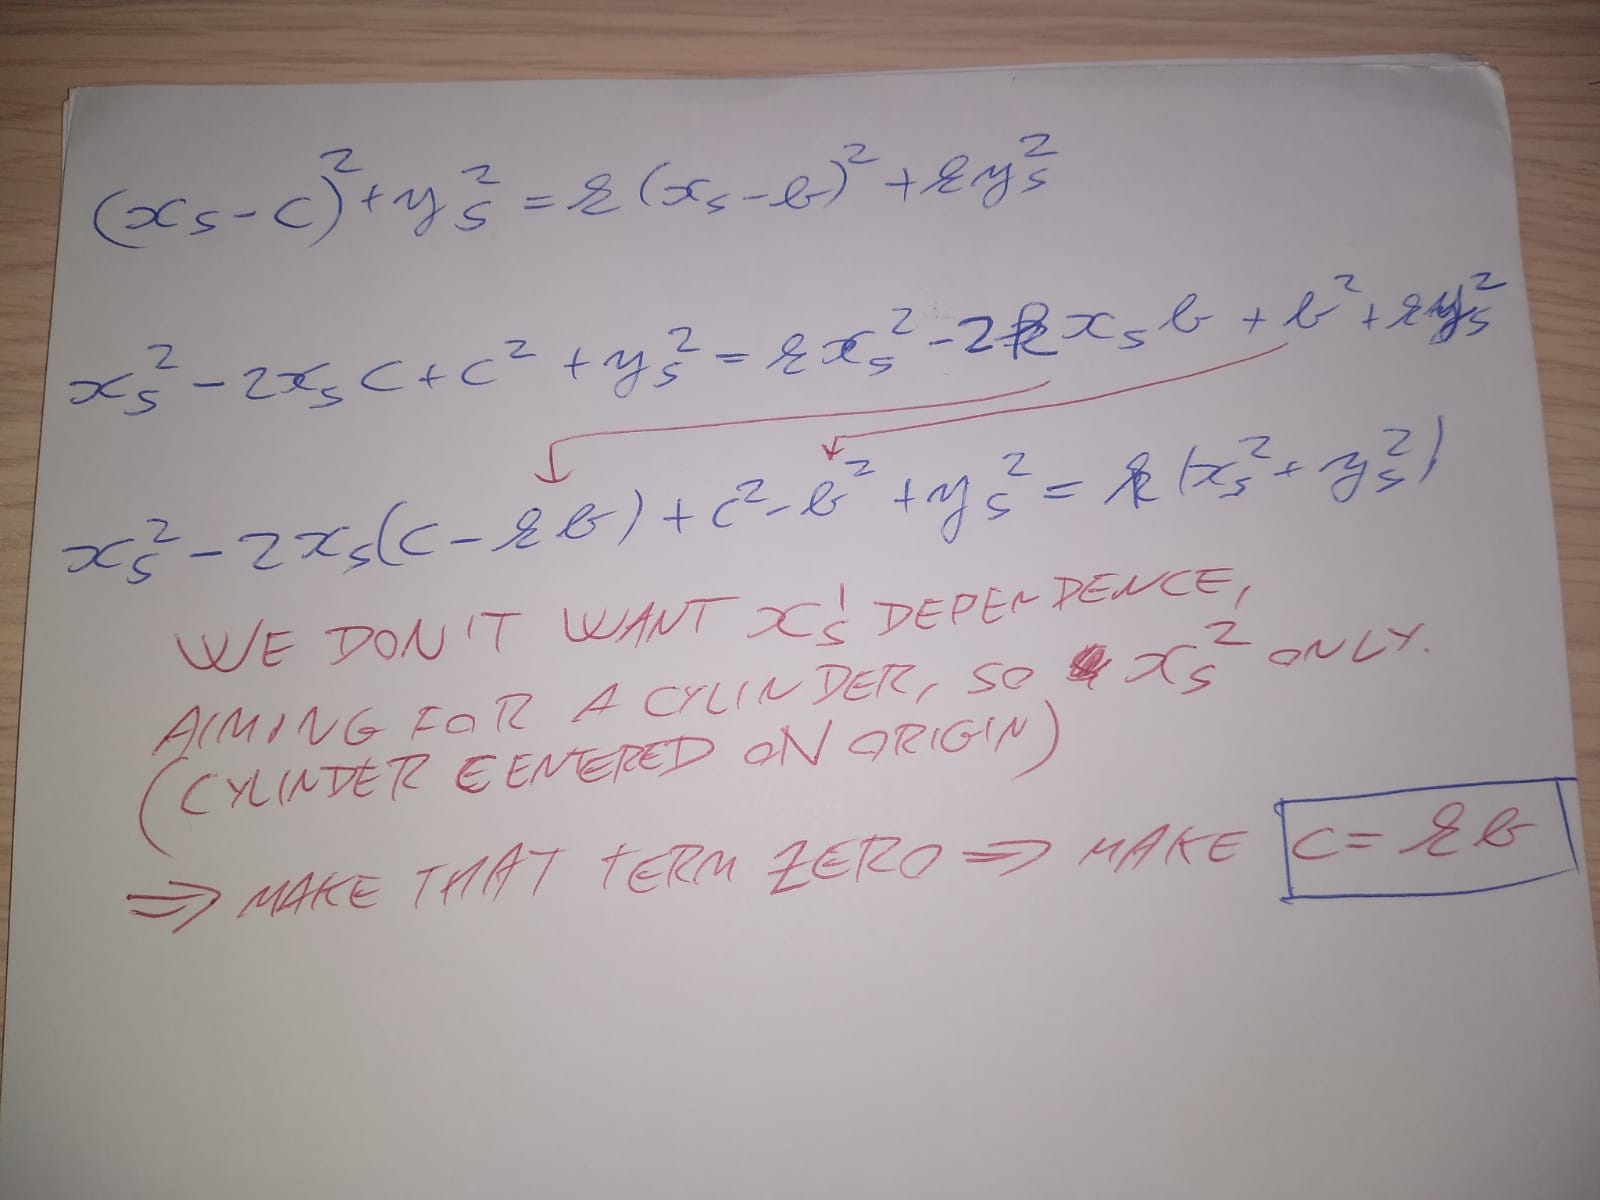 (x_s - c)^2 + y_s^2 = k(x_s - b)^2 + k y_s^2
x_s^2 - 2x_s c + c^2 + y_s^2 = k x_s^2 - 2k x_s b + b^2 + k y_s^2
x_s^2 - 2x_s(c - kb) + c^2 - b^2 + y_s^2 = k(x_s^2 + y_s^2)
WE DON'T WANT x_s^1 DEPENDENCE,
AIMING FOR A CYLINDER, SO x_s^2 ONLY.
(CYLINDER CENTERED ON ORIGIN)
⇒ MAKE THAT TERM ZERO ⇒ MAKE c = kb